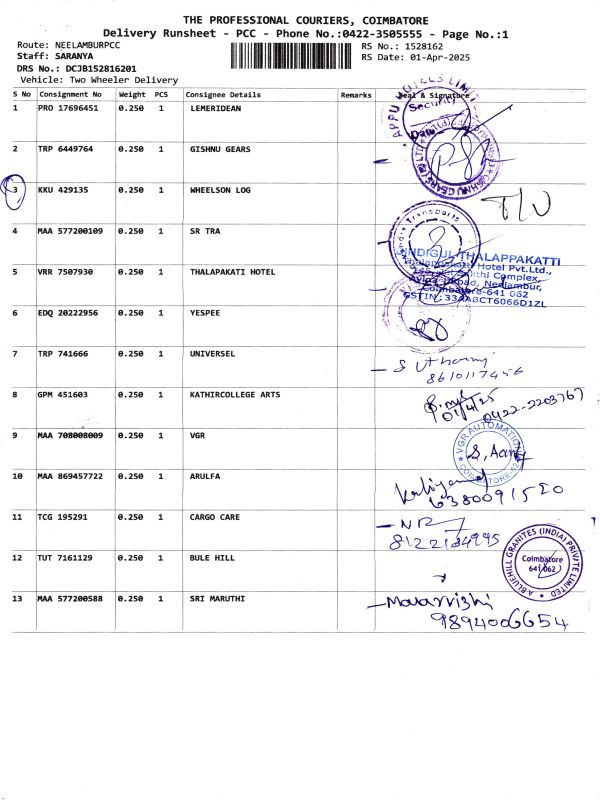 THE PROFESSIONAL COURIERS, COIMBATORE
Delivery Runsheet - PCC - Phone No.:0422-3505555 - Page No.:1
Route: NEELAMBURPCC
RS No.: 1528162
Staff: SARANYA
RS Date: 01-Apr-2025
DRS No.: DCJB152816201
Vehicle: Two Wheeler Delivery
S No Consignment No Weight PCS Consignee Details Remarks Seal & Signature
1 PRO 17696451 0.250 1 LEMERIDEAN
APPU HOTELS LIMITED
Security
Date
2 TRP 6449764 0.250 1 GISHNU GEARS
3 KKU 429135 0.250 1 WHEELSON LOG
T/U
4 MAA 577200109 0.250 1 SR TRA
Transports
DINDIGUL THALAPPAKATTI
Hotel Pvt.Ltd.,
Complex,
Neelambur,
Coimbatore-641 062
GSTIN: 33AABCT6066D1ZL
5 VRR 7507930 0.250 1 THALAPAKATI HOTEL
6 EDQ 20222956 0.250 1 YESPEE
7 TRP 741666 0.250 1 UNIVERSEL
8610117456
8 GPM 451603 0.250 1 KATHIRCOLLEGE ARTS
01/4/25
0422-2203767
9 MAA 708008009 0.250 1 VGR
VGR AUTOMATION
COIMBATORE
10 MAA 869457722 0.250 1 ARULFA
11 TCG 195291 0.250 1 CARGO CARE
12 TUT 7161129 0.250 1 BULE HILL
A BLUEHILL GRANITES (INDIA) PRIVATE LIMITED
Coimbatore
641 062
13 MAA 577200588 0.250 1 SRI MARUTHI
9894006654